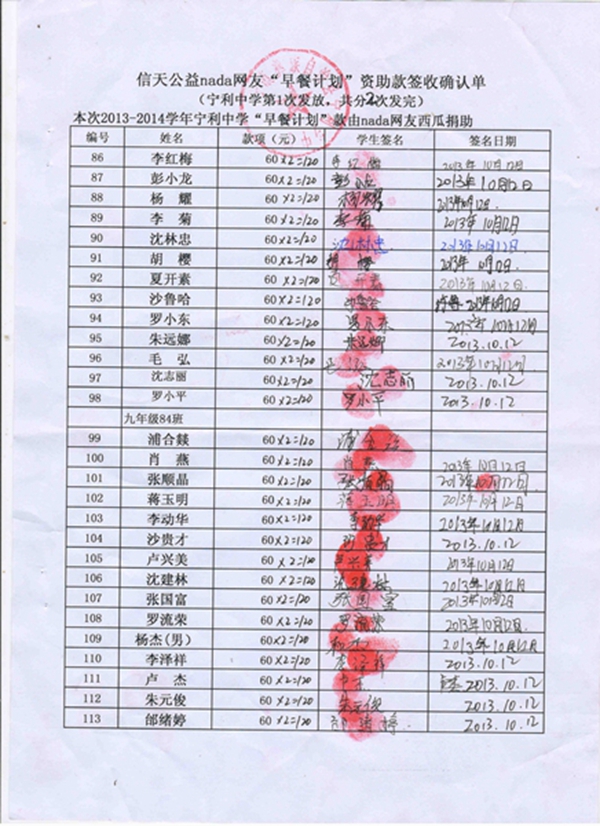 信天公益nada网友“早餐计划”资助款签收确认单
（宁利中学第1次发放，共分2次发完）
本次2013-2014学年宁利中学“早餐计划”款由nada网友西瓜捐助
编号 姓名 款项（元） 学生签名 签名日期
86 李红梅 60×2=120 2013年10月12日
87 彭小龙 60×2=120 彭小龙 2013年10月12日
88 杨 耀 60×2=120 杨耀
89 李 菊 60×2=120 李菊 2013年10月12日
90 沈林忠 60×2=120 沈林忠 2013年10月12日
91 胡 樱 60×2=120 胡樱
92 夏开素 60×2=120 夏开素 2013年10月12日
93 沙鲁哈 60×2=120
94 罗小东 60×2=120 罗小东 2013年10月12日
95 朱远娜 60×2=120 朱远娜 2013.10.12
96 毛 弘 60×2=120 2013年10月12日
97 沈志丽 60×2=120 沈志丽 2013.10.12
98 罗小平 60×2=120 罗小平 2013.10.12
九年级84班
99 浦合燚 60×2=120
100 肖 燕 60×2=120 肖燕 2013年10月12日
101 张顺晶 60×2=120 2013年10月12日
102 蒋玉明 60×2=120 2013年10月12日
103 李动华 60×2=120 2013年10月12日
104 沙贵才 60×2=120 2013.10.12
105 卢兴美 60×2=120 2013年10月12日
106 沈建林 60×2=120 沈建林 2013年10月12日
107 张国富 60×2=120 张国富 2013年10月12日
108 罗流荣 60×2=120 2013年10月12日
109 杨杰(男) 60×2=120 杨杰 2013年10月12日
110 李泽祥 60×2=120 李泽祥 2013.10.12
111 卢 杰 60×2=120 卢杰 2013.10.12
112 朱元俊 60×2=120 朱元俊 2013.10.12
113 邰绪婷 60×2=120 邰绪婷 2013.10.12